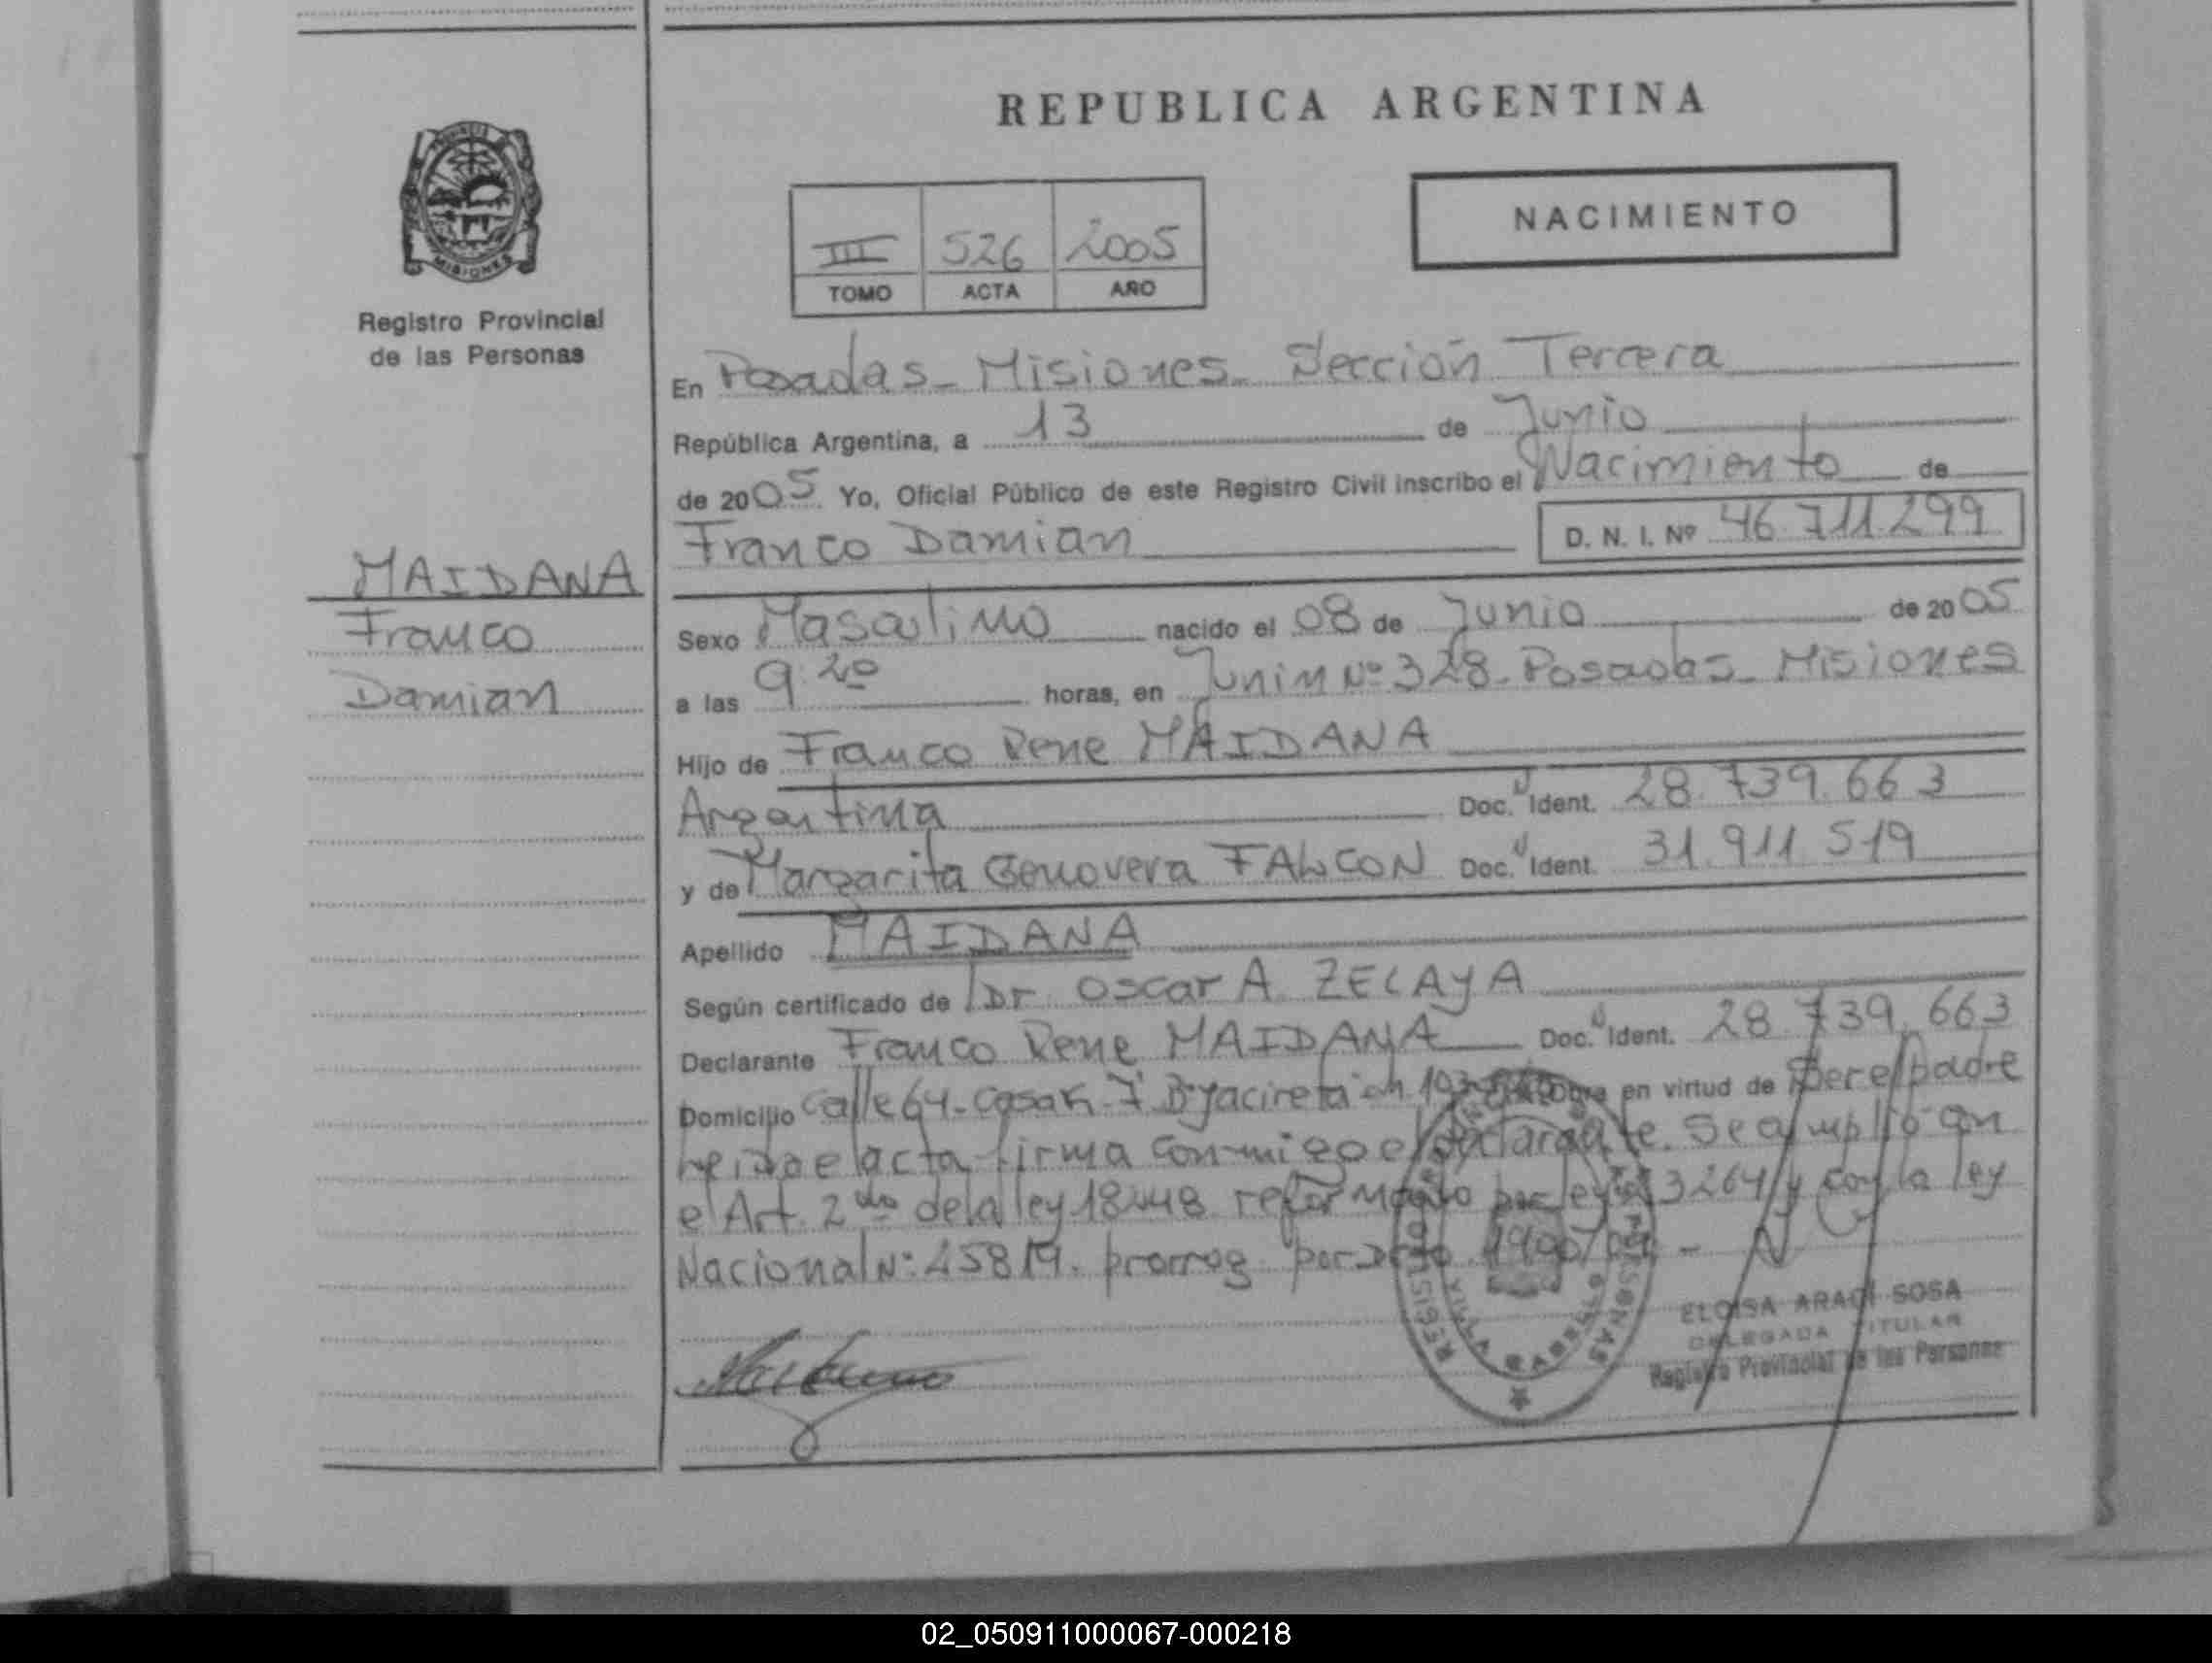 REPUBLICA ARGENTINA
NACIMIENTO
III 526 2005
TOMO ACTA AÑO
MISIONES
Registro Provincial
de las Personas
En Posadas - Misiones - Sección Tercera
República Argentina, a 13 de Junio
de 2005 Yo, Oficial Público de este Registro Civil inscribo el Nacimiento de
Franco Damian D. N. I. Nº 46.711.299
MAIDANA
Franco
Damian
Sexo Masculino nacido el 08 de Junio de 2005
a las 9:20 horas, en Junin Nº 328 - Posadas - Misiones
Hijo de Franco Rene MAIDANA
Argentina Doc. Ident. 28.739.663
y de Margarita Genovera FALCON Doc. Ident. 31.911.519
Apellido MAIDANA
Según certificado de Dr. Oscar A ZELAYA
Declarante Franco Rene MAIDANA Doc. Ident. 28.739.663
Domicilio Calle 64 - Casa K-7 Bº Yacireta en virtud de Ser el padre
leida el acta firma conmigo el declarante. Se cumplió con
el Art. 2do de la ley 18448 reformado por ley 3264 y con la ley
Nacional Nº: 25819. prorrog. por Dcto
ELOISA ARACI SOSA
DELEGADA TITULAR
Registro Provincial de las Personas
02_050911000067-000218